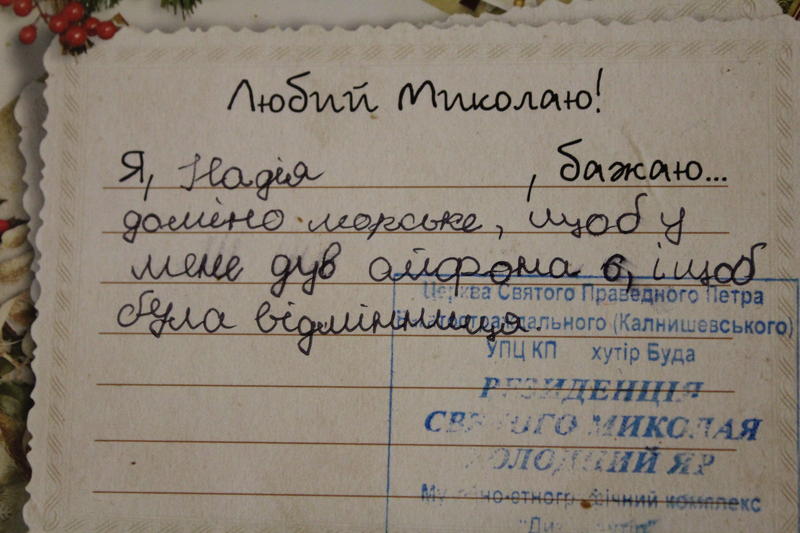 Любий Миколаю!
Я, Надія , бажаю...
доміно морське, щоб у
мене дув айфона 6, і щоб
була відмінниця.
Церква Святого Праведного Петра
(Калнишевського)
УПЦ КП хутір Буда
РЕЗИДЕНЦІЯ
СВЯТОГО МИКОЛАЯ
ХОЛОДНИЙ ЯР
комплекс